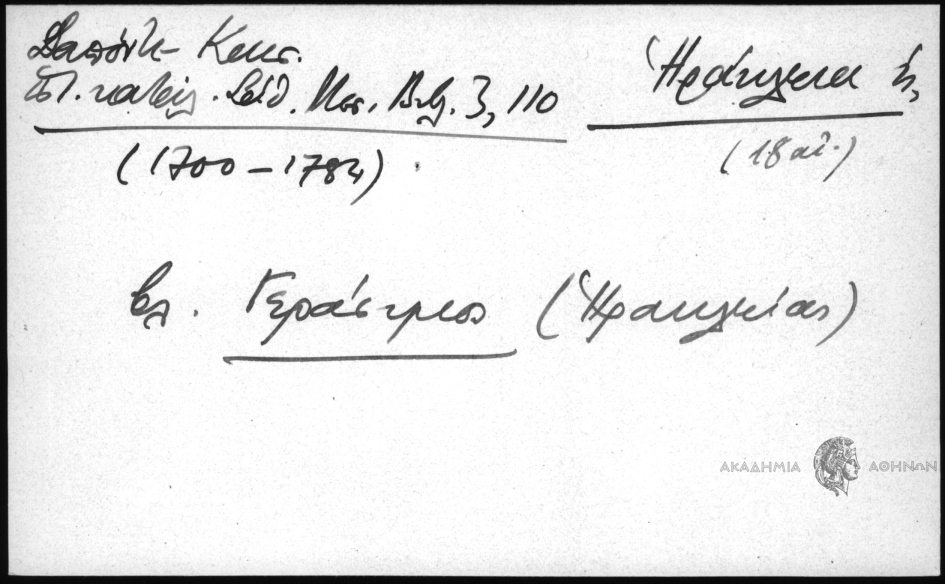 Δαπόντε Κωνσ.
Ἱστ. καταλ. Σάθ. Μεσ. Βιβ. 3, 110
(1700 – 1784)
Ἡράκλεια ἡ,
(18 αἰ.)
βλ. Γεράσιμος (Ἡρακλείας)
ΑΚΑΔΗΜΙΑ ΑΘΗΝΩΝ